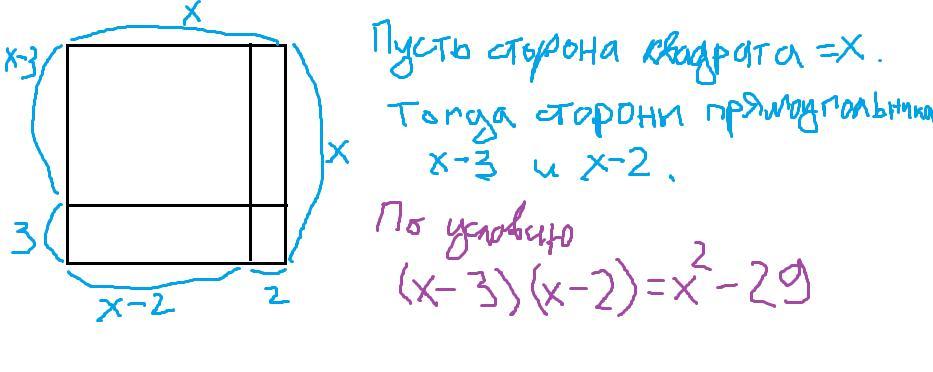 x
x-3
x
3
x-2
2
Пусть сторона квадрата =x.
Тогда сторони прямоугольника
x-3 и x-2.
По условию
(x-3)(x-2)=x²-29